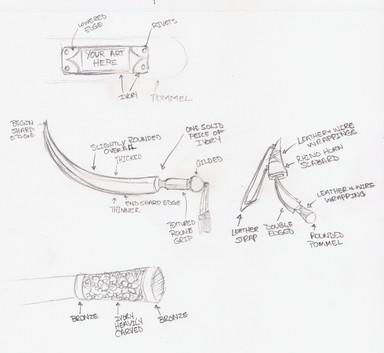 LOWERED
EDGE
RIVETS
YOUR ART
HERE
IVORY
POMMEL
BEGIN
SHARP
EDGE
SLIGHTLY ROUNDED
OVERALL
THICKER
ONE SOLID
PEICE OF
IVORY
GILDED
END SHARP EDGE
THINNER
TEXTURED
ROUND
GRIP
LEATHER & WIRE
WRAPPINGS
RHINO HORN
SCABARD
LEATHER & WIRE
WRAPPING
LEATHER
STRAP
DOUBLE
EDGED
ROUNDED
POMMEL
BRONZE
IVORY
HEAVILY
CARVED
BRONZE